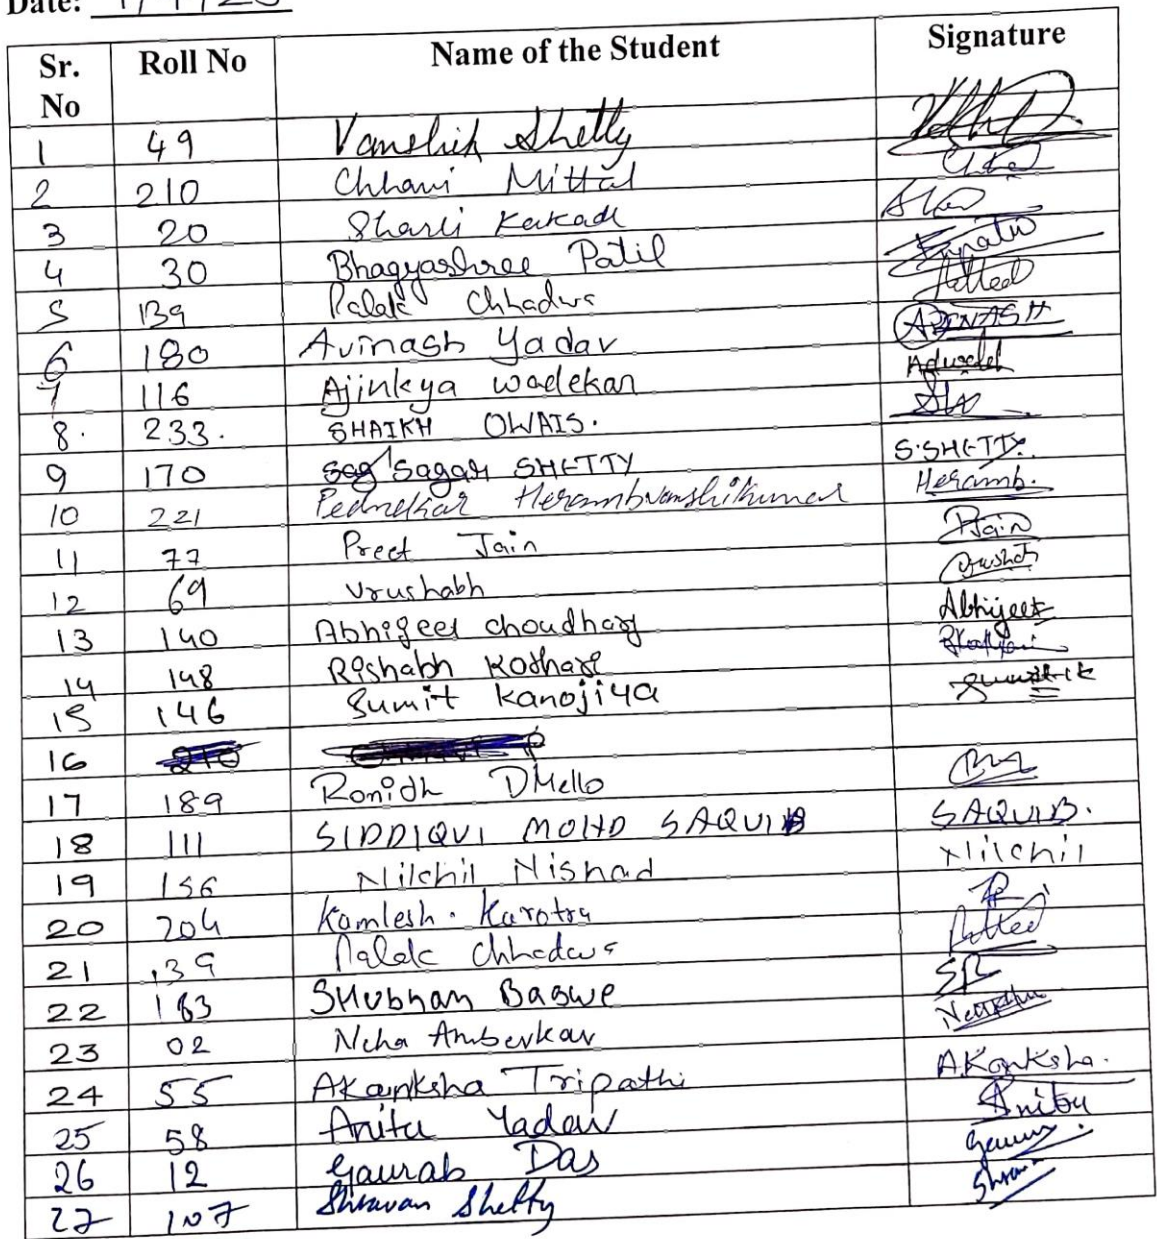 Date: 1/4/23
Sr. No Roll No Name of the Student Signature
1 49 Vanshik Shetty
2 210 Chhavi Mittal
3 20 Sharli Kakade
4 30 Bhagyashree Patil
5 139 Palak Chhadwa
6 180 Avinash Yadav AVINASH
7 116 Ajinkya wadekar
8. 233. SHAIKH OWAIS.
9 170 Sagar SHETTY S.SHETTY.
10 221 Pednekar Herambvanshikumar Heramb.
11 77 Preet Jain PJain
12 69 Vrushabh
13 140 Abhijeet choudhary Abhijeet
14 148 Rishabh Kothari
15 146 Sumit Kanojiya
16
17 189 Ronidh DMello
18 111 SIDDIQUI MOHD SAQUIB SAQUIB.
19 156 Nilchil Nishad Nilchil
20 204 Kamlesh. Karotra
21 139 Palak Chhadwa
22 163 SHubham Bagwe
23 02 Neha Amberkar
24 55 Akanksha Tripathi A.Kanksha.
25 58 Anita Yadav Anita
26 12 Gaurab Das
27 107 Shravan Shetty